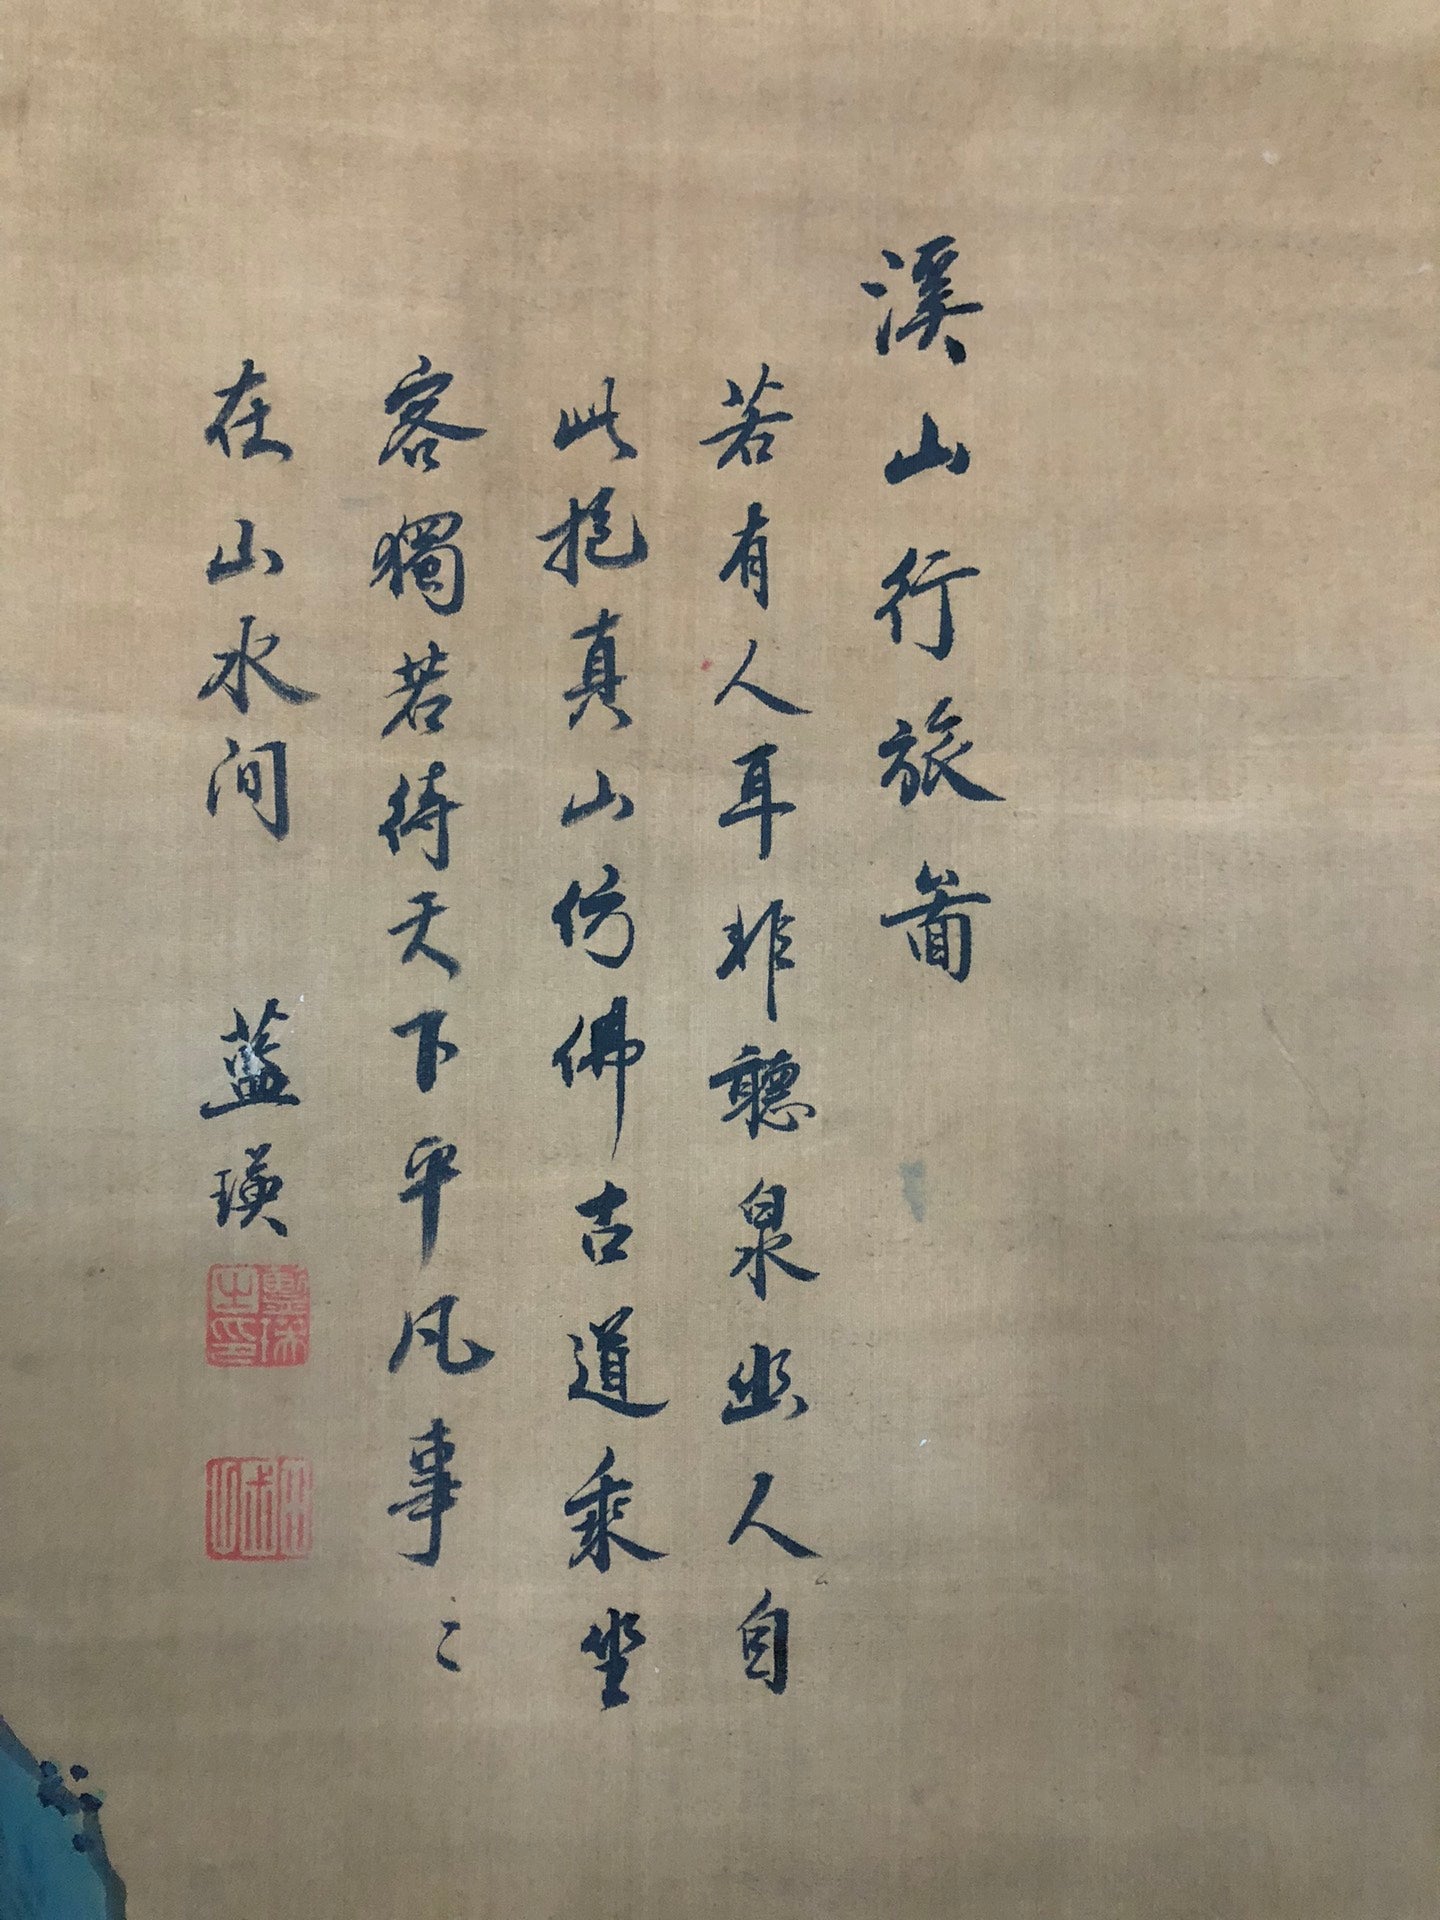 溪山行旅啚
若有人耳非聽泉幽人自
此抱真山仿佛古道乘坐
客獨若待天下平凡事〻
在山水间
藍瑛